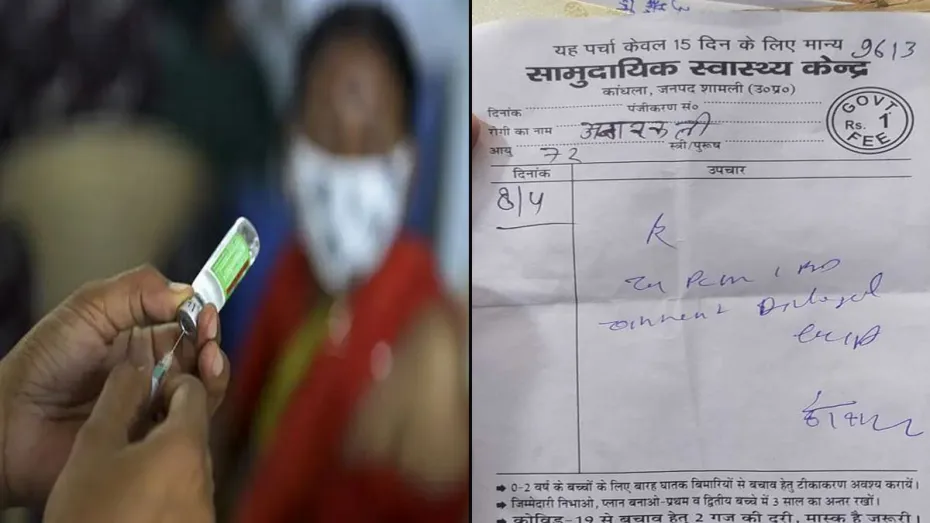 यह पर्चा केवल 15 दिन के लिए मान्य 9613
सामुदायिक स्वास्थ्य केन्द्र
कांधला, जनपद शामली (उ०प्र०)
दिनांक पंजीकरण सं०
रोगी का नाम
आयु 72 स्त्री/पुरूष
GOVT
Rs. 1
FEE
दिनांक उपचार
8/4
➡ 0-2 वर्ष के बच्चों के लिए बारह घातक बिमारियों से बचाव हेतु टीकाकरण अवश्य करायें।
➡ जिम्मेदारी निभाओ, प्लान बनाओ-प्रथम व द्वितीय बच्चे में 3 साल का अन्तर रखों।
➡ कोविड-19 से बचाव हेतु 2 गज की दूरी, मास्क है जरूरी।